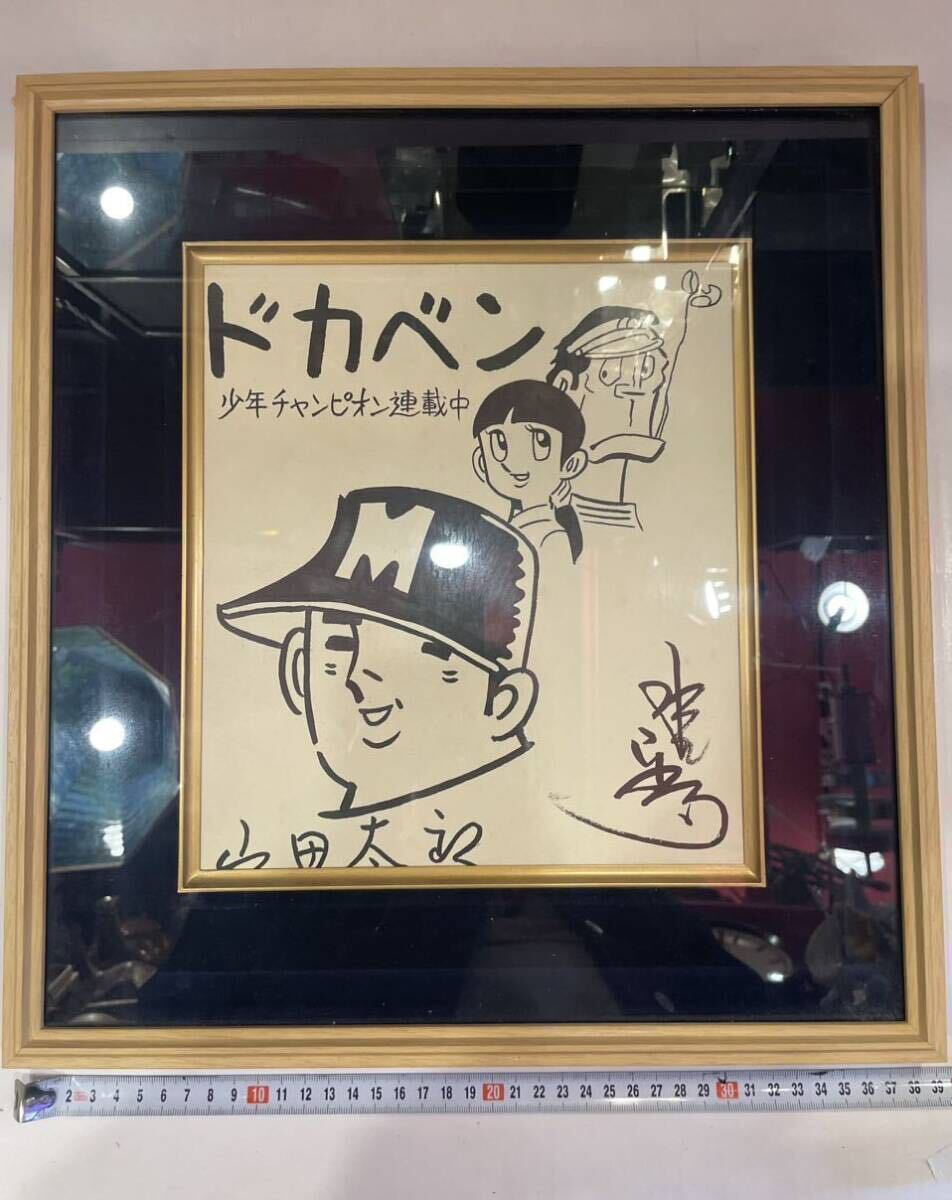 ドカベン
少年チャンピオン連載中
M
山田太郎
2 3 4 5 6 7 8 9 10 11 12 13 14 15 16 17 18 19 20 21 22 23 24 25 26 27 28 29 30 31 32 33 34 35 36 37 38 39